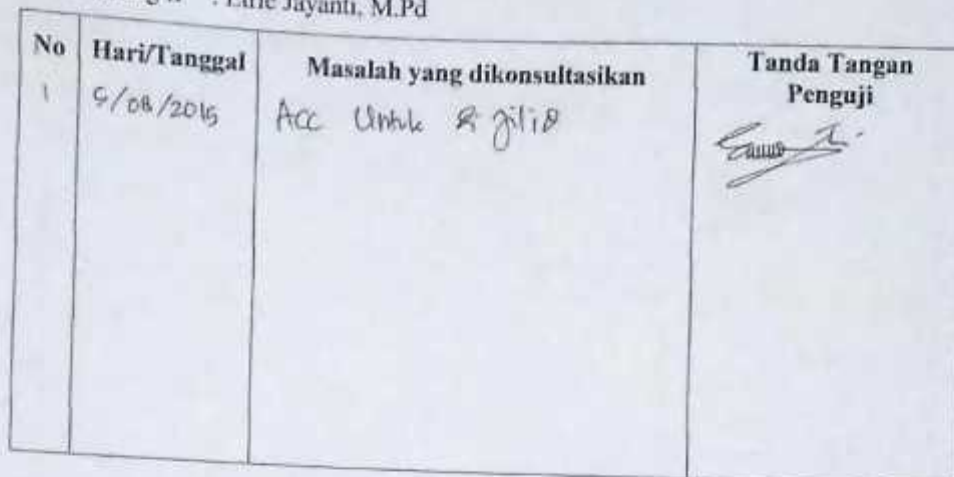 : Etrie Jayanti, M.Pd
No Hari/Tanggal Masalah yang dikonsultasikan Tanda Tangan Penguji
1 5/08/2015 Acc Untuk di jilid